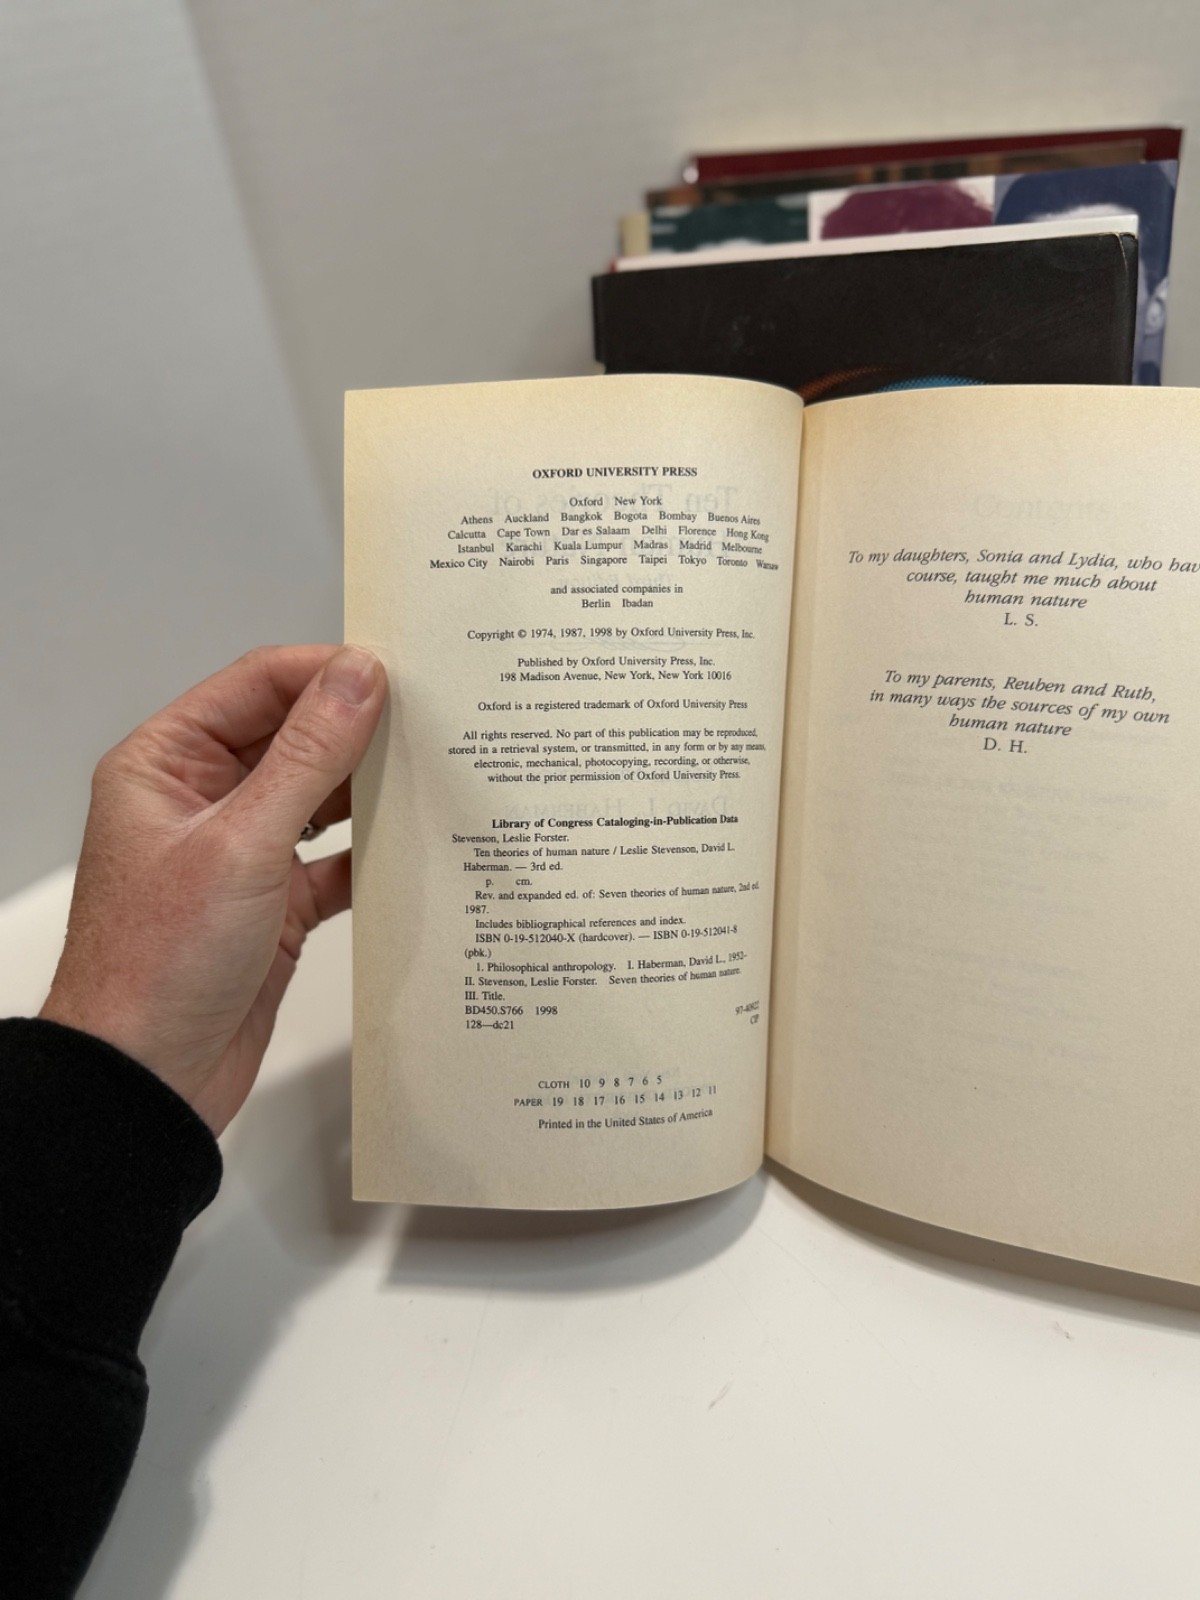 OXFORD UNIVERSITY PRESS
Oxford New York
Athens Auckland Bangkok Bogota Bombay Buenos Aires
Calcutta Cape Town Dar es Salaam Delhi Florence Hong Kong
Istanbul Karachi Kuala Lumpur Madras Madrid Melbourne
Mexico City Nairobi Paris Singapore Taipei Tokyo Toronto Warsaw
and associated companies in
Berlin Ibadan
Copyright © 1974, 1987, 1998 by Oxford University Press, Inc.
Published by Oxford University Press, Inc.
198 Madison Avenue, New York, New York 10016
Oxford is a registered trademark of Oxford University Press
All rights reserved. No part of this publication may be reproduced,
stored in a retrieval system, or transmitted, in any form or by any means,
electronic, mechanical, photocopying, recording, or otherwise,
without the prior permission of Oxford University Press.
Library of Congress Cataloging-in-Publication Data
Stevenson, Leslie Forster.
Ten theories of human nature / Leslie Stevenson, David L.
Haberman. — 3rd ed.
p. cm.
Rev. and expanded ed. of: Seven theories of human nature, 2nd ed.
1987.
Includes bibliographical references and index.
ISBN 0-19-512040-X (hardcover). — ISBN 0-19-512041-8
(pbk.)
1. Philosophical anthropology. I. Haberman, David L., 1952-
II. Stevenson, Leslie Forster. Seven theories of human nature.
III. Title.
BD450.S766 1998
128—dc21
CIP
CLOTH 10 9 8 7 6 5
PAPER 19 18 17 16 15 14 13 12 11
Printed in the United States of America
To my daughters, Sonia and Lydia, who hav
course, taught me much about
human nature
L. S.
To my parents, Reuben and Ruth,
in many ways the sources of my own
human nature
D. H.